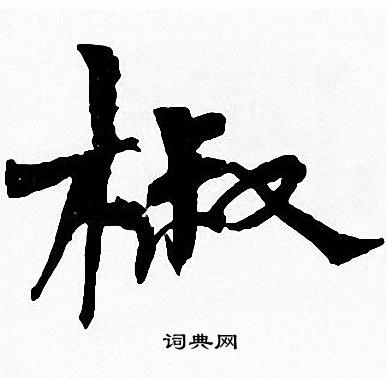 椒
词典网